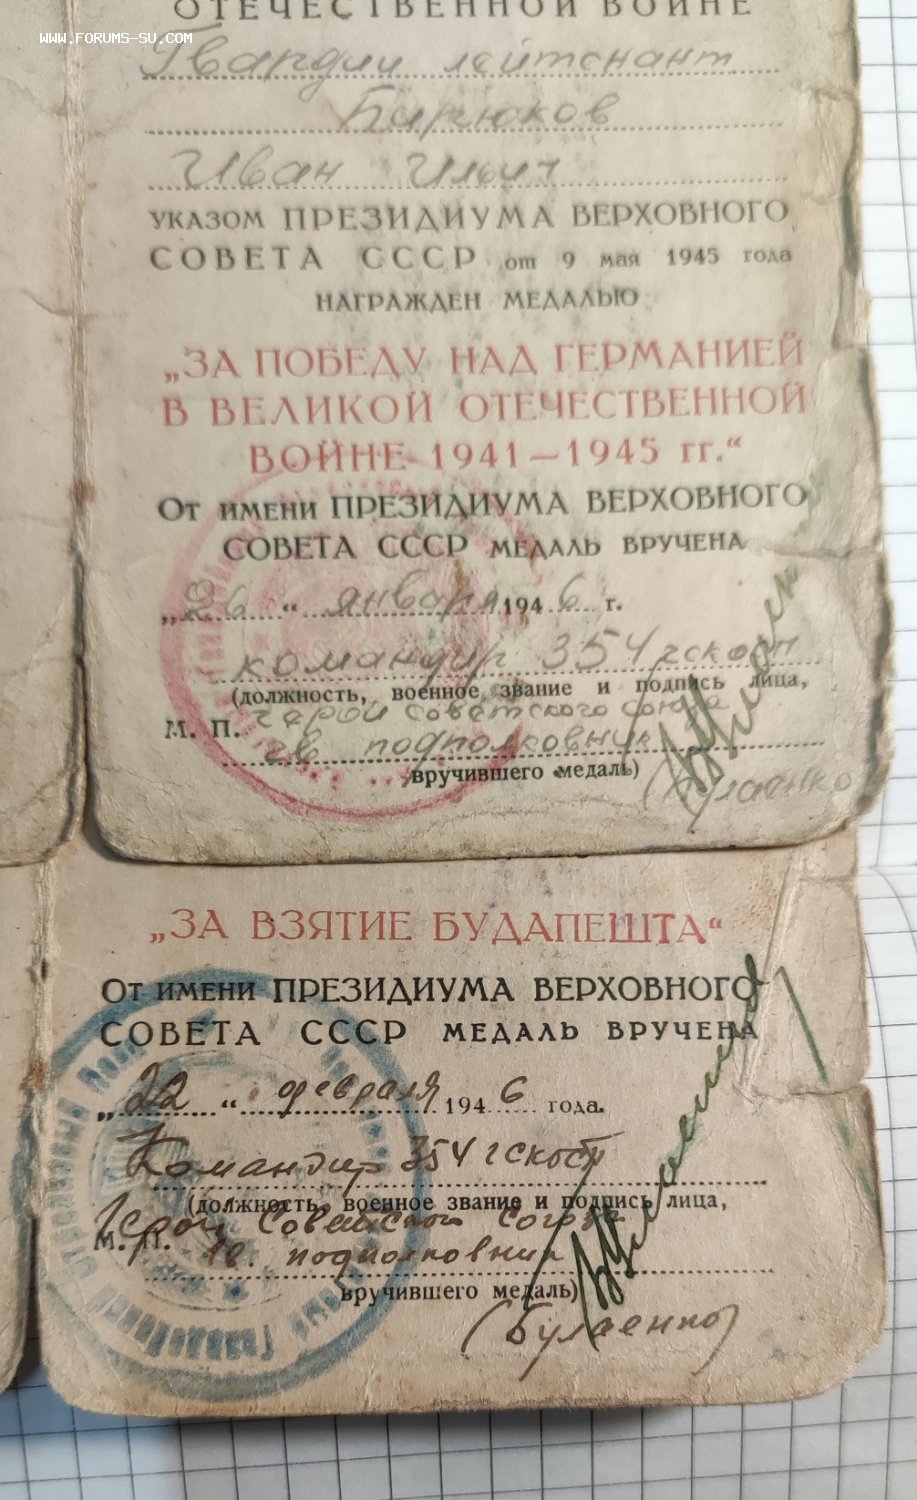 ОТЕЧЕСТВЕННОЙ ВОЙНЕ
WWW.FORUMS-SU.COM
Гвардии лейтенант
Бирюков
Иван Ильич
УКАЗОМ ПРЕЗИДИУМА ВЕРХОВНОГО
СОВЕТА СССР от 9 мая 1945 года
НАГРАЖДЕН МЕДАЛЬЮ
„ЗА ПОБЕДУ НАД ГЕРМАНИЕЙ
В ВЕЛИКОЙ ОТЕЧЕСТВЕННОЙ
ВОЙНЕ 1941—1945 гг.“
От имени ПРЕЗИДИУМА ВЕРХОВНОГО
СОВЕТА СССР МЕДАЛЬ ВРУЧЕНА
„26“ января 1946 г.
командир 354 гскосп
(должность, военное звание и подпись лица,
герой советского союза
М. П. гв подполковник
вручившего медаль)
(Булаенко
„ЗА ВЗЯТИЕ БУДАПЕШТА“
От имени ПРЕЗИДИУМА ВЕРХОВНОГО
СОВЕТА СССР МЕДАЛЬ ВРУЧЕНА
„22“ февраля 1946 года.
Командир 354 гскосп
(должность, военное звание и подпись лица,
Герой Советского союза
М. П. гв. подполковник
вручившего медаль)
(Булаенко)